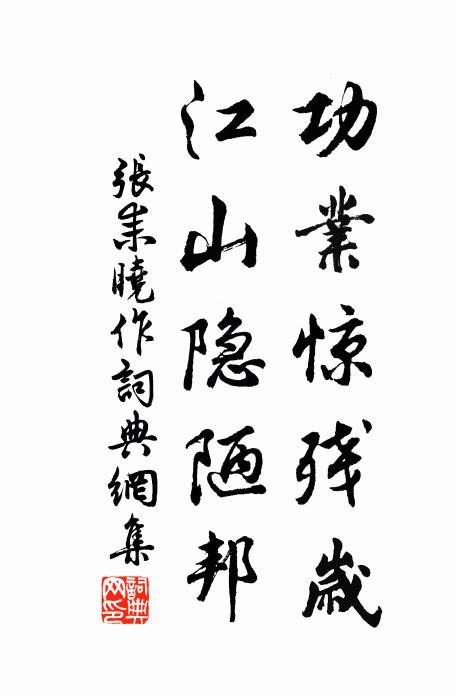 功業惊残歲
江山隐陋邦
張耒曉作詞典網集
詞典网印